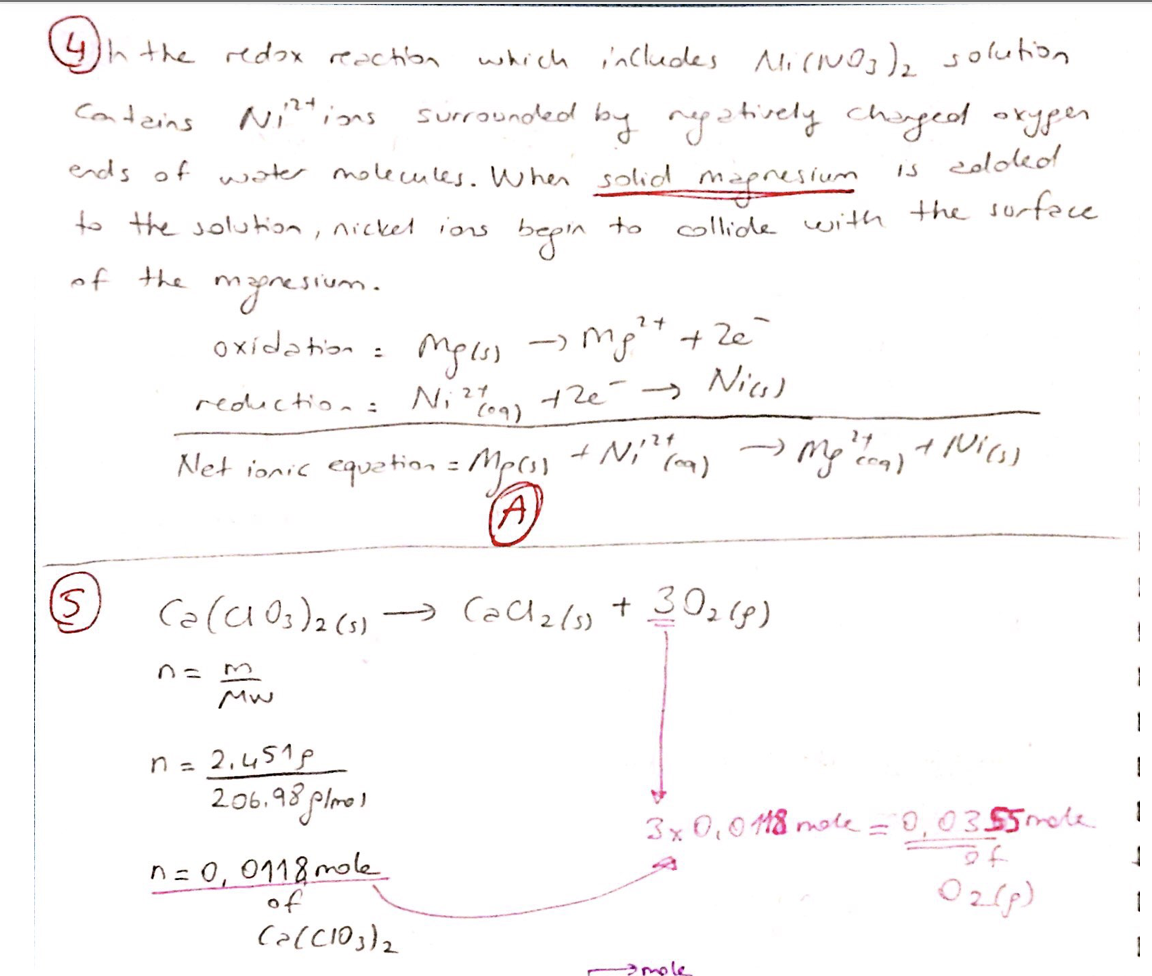 4 In the redox reaction which includes Ni(NO3)2 solution
contains Ni²⁺ ions surrounded by negatively charged oxygen
ends of water molecules. When solid magnesium is added
to the solution, nickel ions begin to collide with the surface
of the magnesium.
oxidation = Mg(s) → Mg²⁺ + 2e⁻
reduction = Ni²⁺(aq) + 2e⁻ → Ni(s)
Net ionic equation = Mg(s) + Ni²⁺(aq) → Mg²⁺(aq) + Ni(s)
A
5 Ca(ClO3)2(s) → CaCl2(s) + 3O2(g)
n = m/MW
n = 2,451g / 206,98 g/mol
3 x 0,0118 mole = 0,0355 mole
of
O2(g)
n = 0,0118 mole
of
Ca(ClO3)2
→ mole